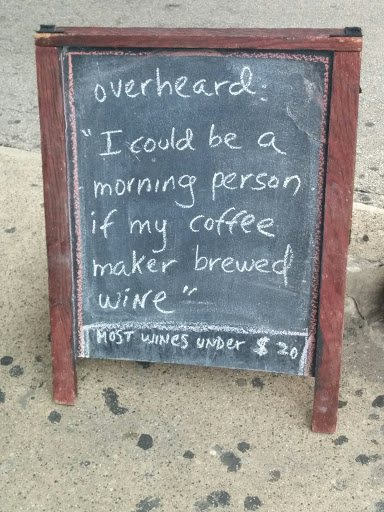 overheard:
"I could be a
morning person
if my coffee
maker brewed
wine"
MOST WINES UNDER $20